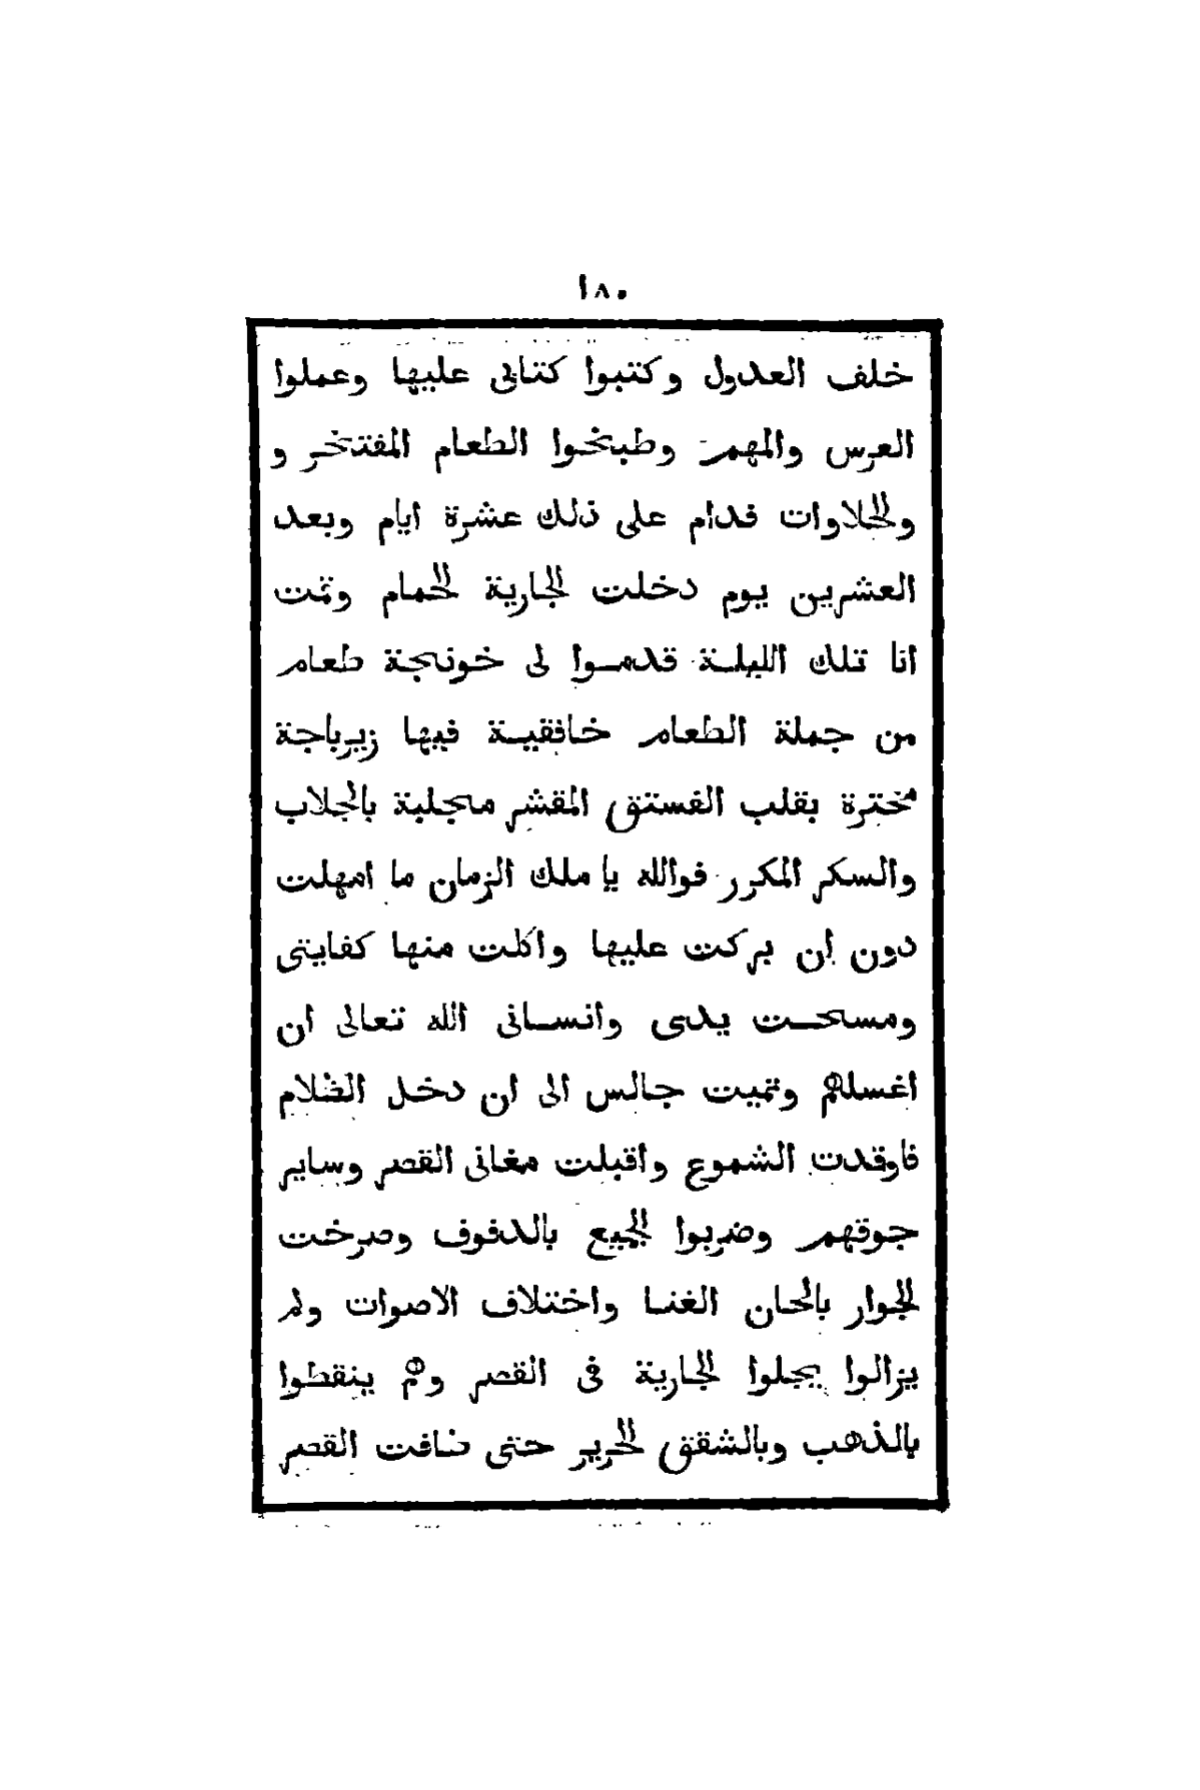 ١٨٠
خلف العدول وكتبوا كتابى عليها وعملوا
العرس والمهم وطبخوا الطعام المفتخر و
والحلاوات فدام على ذلك عشرة ايام وبعد
العشرين يوم دخلت الجارية الحمام وتمت
انا تلك الليلة قدموا لى خونجة طعام
من جملة الطعام خافقية فيها زيرباجة
مخترة بقلب الفستق المقشر منجلبة بالجلاب
والسكر المكرر فوالله يا ملك الزمان ما امهلت
دون ان بركت عليها واكلت منها كفايتى
ومسحت يدى وانسانى الله تعالى ان
اغسلهم وتميت جالس الى ان دخل الظلام
فاوقدت الشموع واقبلت مغانى القصر وساير
جوقهم وضربوا الجميع بالدفوف وصرخت
الجوار بالحان الغنا واختلاف الاصوات ولم
يزالوا يجلوا الجارية فى القصر وهم ينقطوا
بالذهب وبالشقق الحرير حتى ضافت القصر